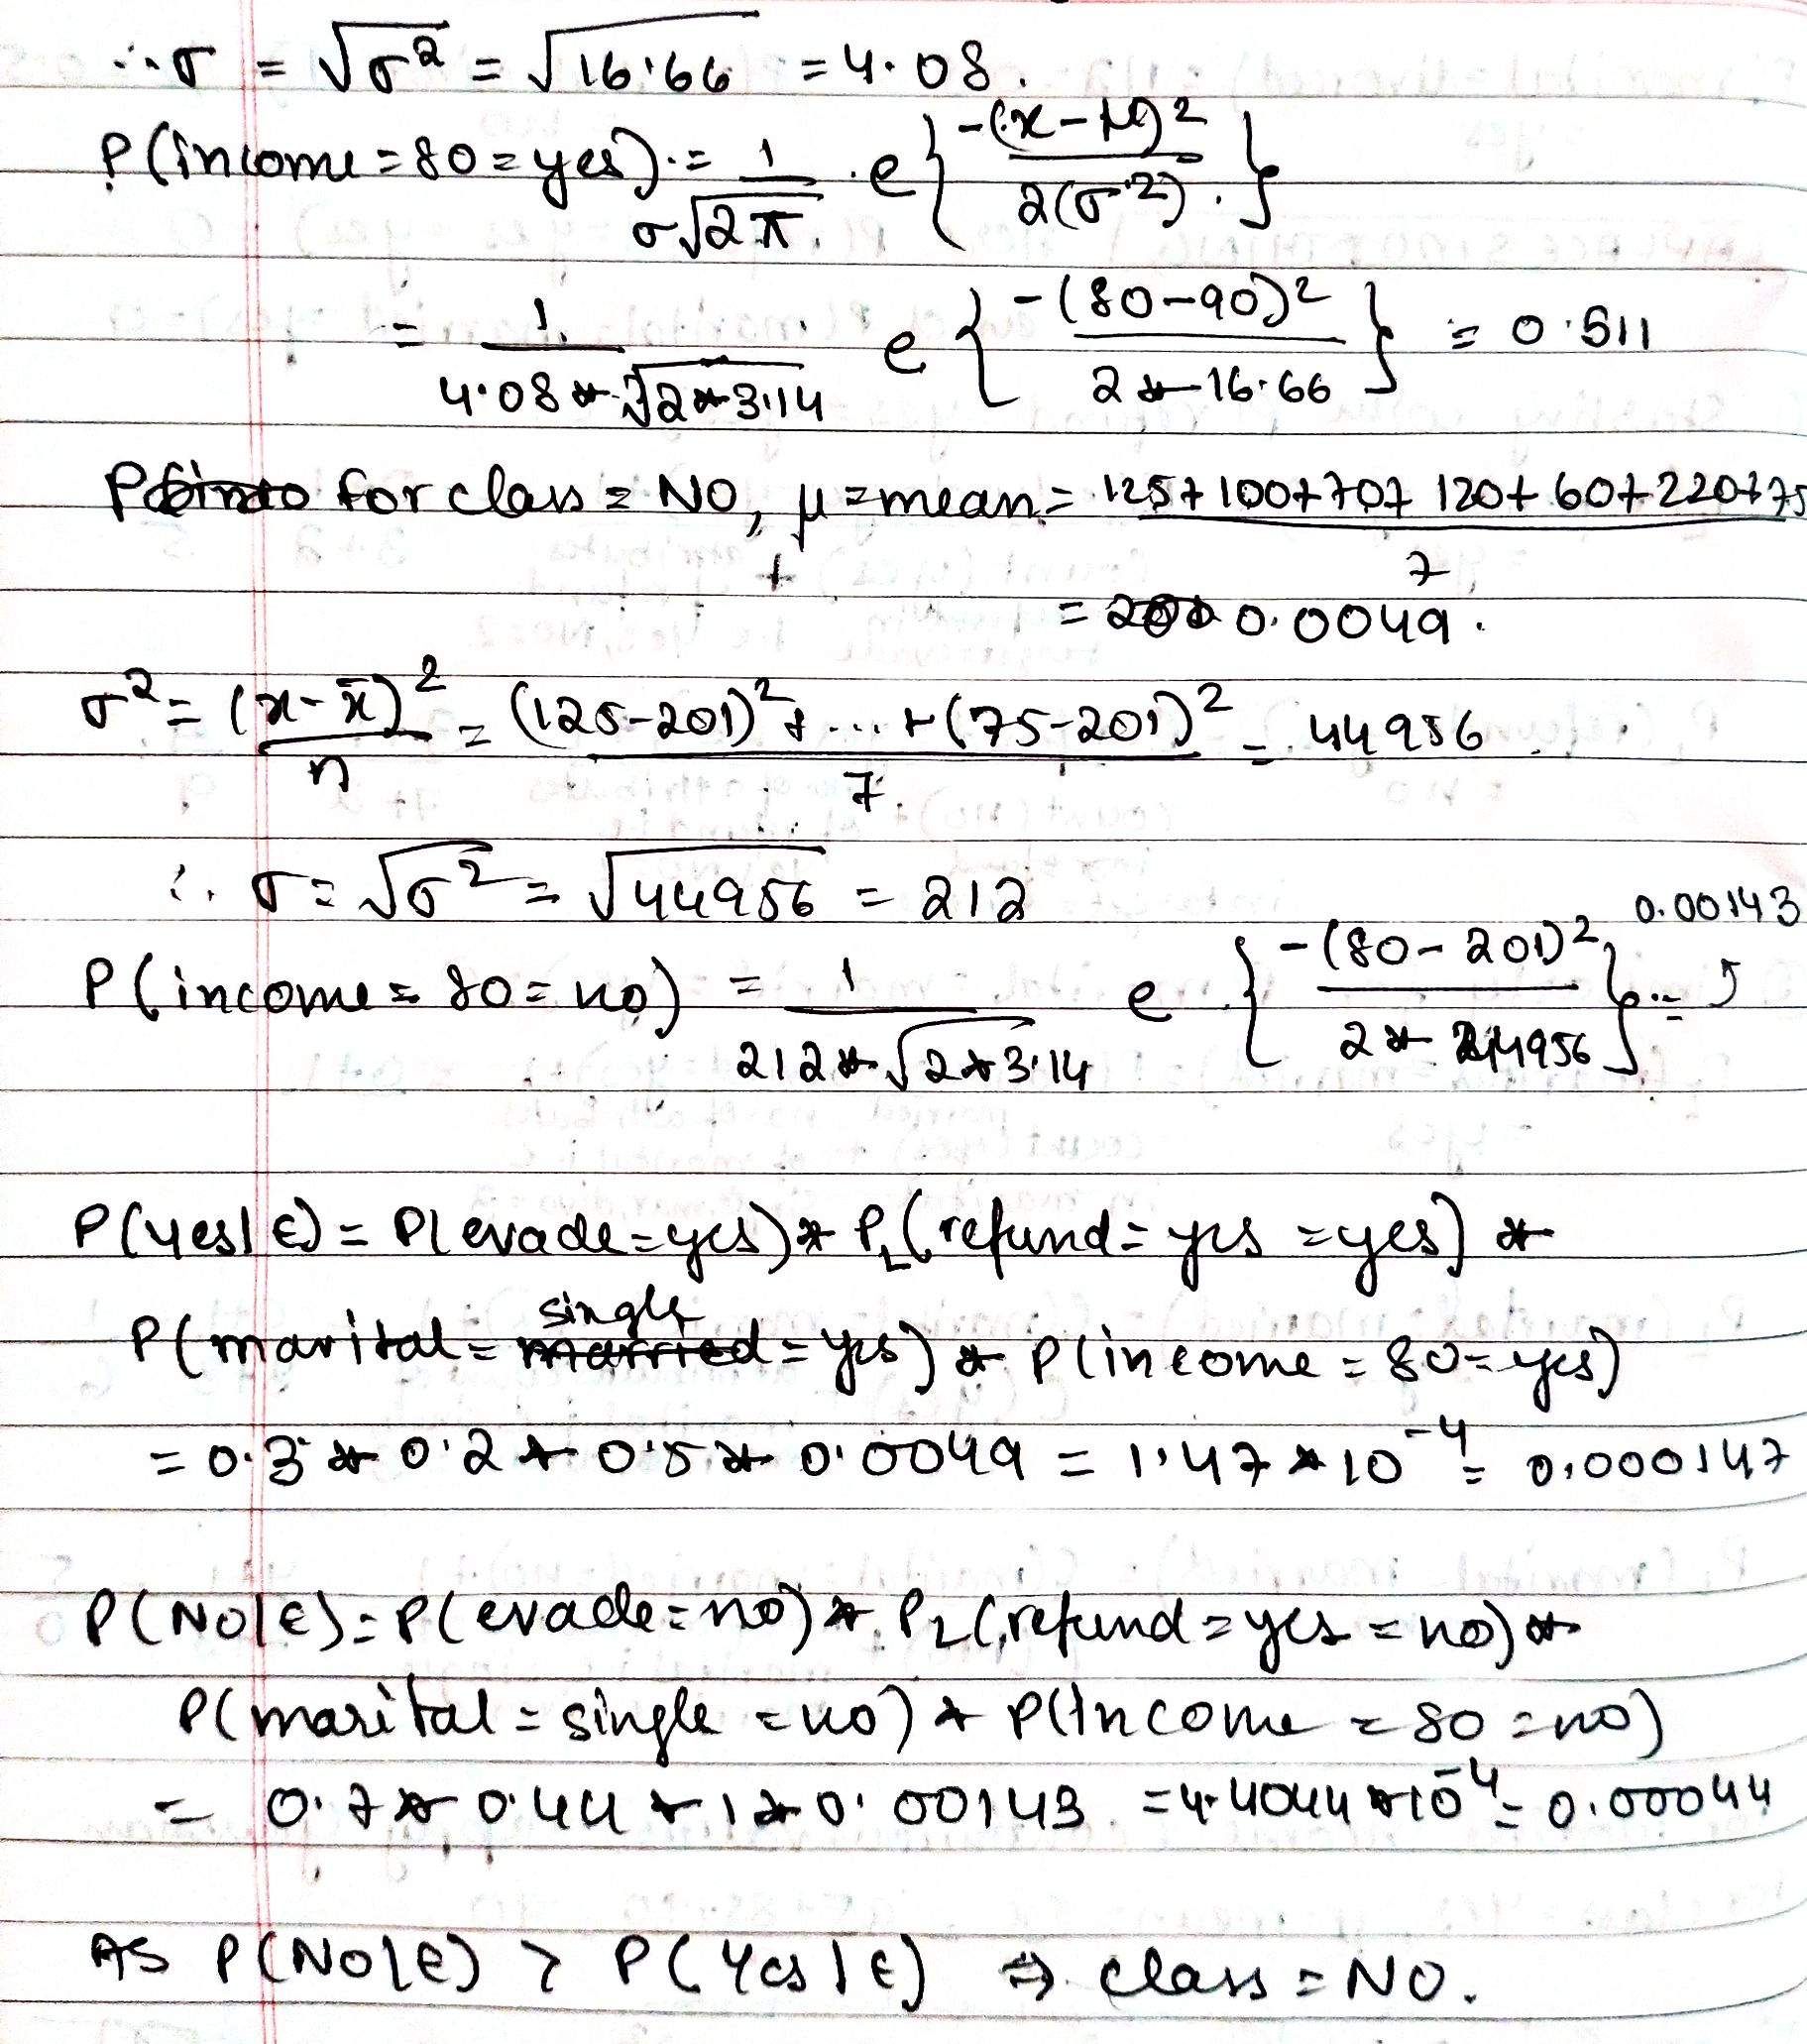 ∴ σ = √σ² = √16.66 = 4.08.
P(income = 80 = yes) = 1/(σ√2π) . e{-(x-μ)²/2(σ²)}
= 1/(4.08 * √2*3.14) e{-(80-90)²/(2*16.66)} = 0.511
for class = NO, μ = mean = (125+100+70+120+60+220+75)/7
= 0.0049.
σ² = (x-x̄)²/n = ((125-201)² + ... + (75-201)²)/7 = 44956
∴ σ = √σ² = √44956 = 212
P(income = 80 = no) = 1/(212 * √2*3.14) e{-(80-201)²/(2*44956)} = 0.00143
P(yes|E) = P(evade=yes) * P₁(refund = yes = yes) *
P(marital = single = yes) * P(income = 80 = yes)
= 0.3 * 0.2 * 0.5 * 0.0049 = 1.47 * 10⁻⁴ = 0.000147
P(NO|E) = P(evade = no) * P₂(refund = yes = no) *
P(marital = single = no) * P(Income = 80 = no)
= 0.7 * 0.44 * 1 * 0.00143 = 4.4044 * 10⁻⁴ = 0.00044
AS P(NO|E) > P(Yes|E) ⇒ class = NO.